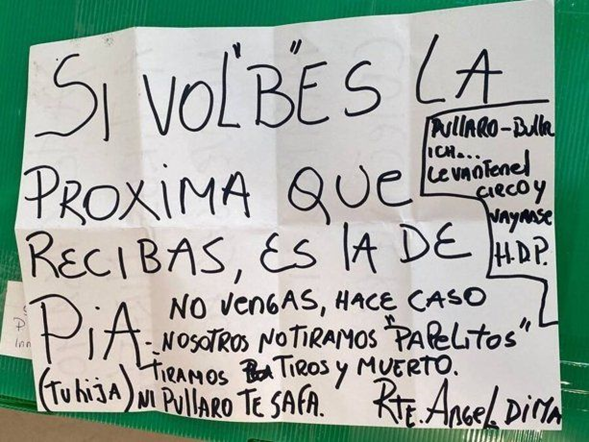 SI VOL"B"ES LA
PROXIMA QUE
RECIBAS, ES LA DE
PIA
(tu hija)
PULLARO-Bullr
ICH...
LevanTenel
CIRCO Y
VAYANSE
H.D.P.
NO VENGAS, HACE CASO
-NOSOTROS NO TIRAMOS "PAPELITOS"
TIRAMOS TIROS y MUERTO.
NI PULLARO TE SAFA.
RTE. ANGEL DIMA